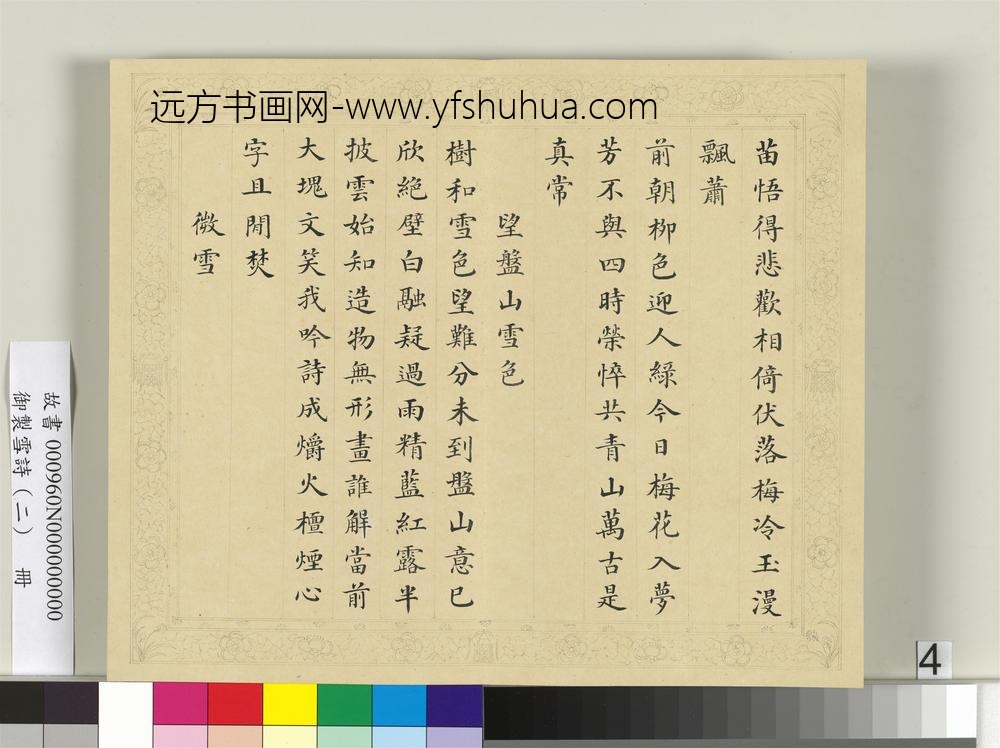 远方书画网-www.yfshuhua.com
苗悟得悲歡相倚伏落梅冷玉漫
飄蕭
前朝柳色迎人綠今日梅花入夢
芳不與四時榮悴共青山萬古是
真常
望盤山雪色
樹和雪色望難分未到盤山意已
欣絕壁白融疑過雨精藍紅露半
披雲始知造物無形畫誰解當前
大塊文笑我吟詩成爝火檀煙心
字且閒焚
微雪
故書 000960N000000000
御製雪詩(二) 冊
4